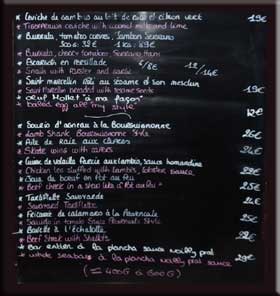 * Ceviche de cambus au lait de coco et citron vert 19€
* ceviche with coconut milk and lime
* Burrata, tomates cerises, Jambon Serrano
100g 1
* Burrata, cherry tomatoes, Serrano Ham
* en persillade 6/8€
* Snails with and 12/16€
* Saint marcellin rôti au sésame et son mesclun
* Saint Marcellin breaded with sesame seeds 19€
* Oeuf Mollet "à ma façon"
* boiled egg "my style" 12€
* Souris d'agneau à la Bourguignonne
* Lamb Shank Bourguignonne Style 26€
* Aile de raie aux câpres
* Skate wing with capers 24€
* Cuisse de volaille farcie sauce homardine
* Chicken leg stuffed with lobster sauce 23€
* Joue de boeuf en pot au feu
* Beef cheek in a stew like a "Pot au feu" 25€
* Tartiflette Savoyarde
* Savoyard Tartiflette 21€
* de calamars à la Provençale
* Squids in tomato sauce Provençale Style 25€
* Bavette à l'échalotte
* Beef Steak with Shallots
* Bar entier à la plancha sauce noilly prat
* whole seabass à la plancha noilly prat sauce 29€
(≈ 400G à 600G)